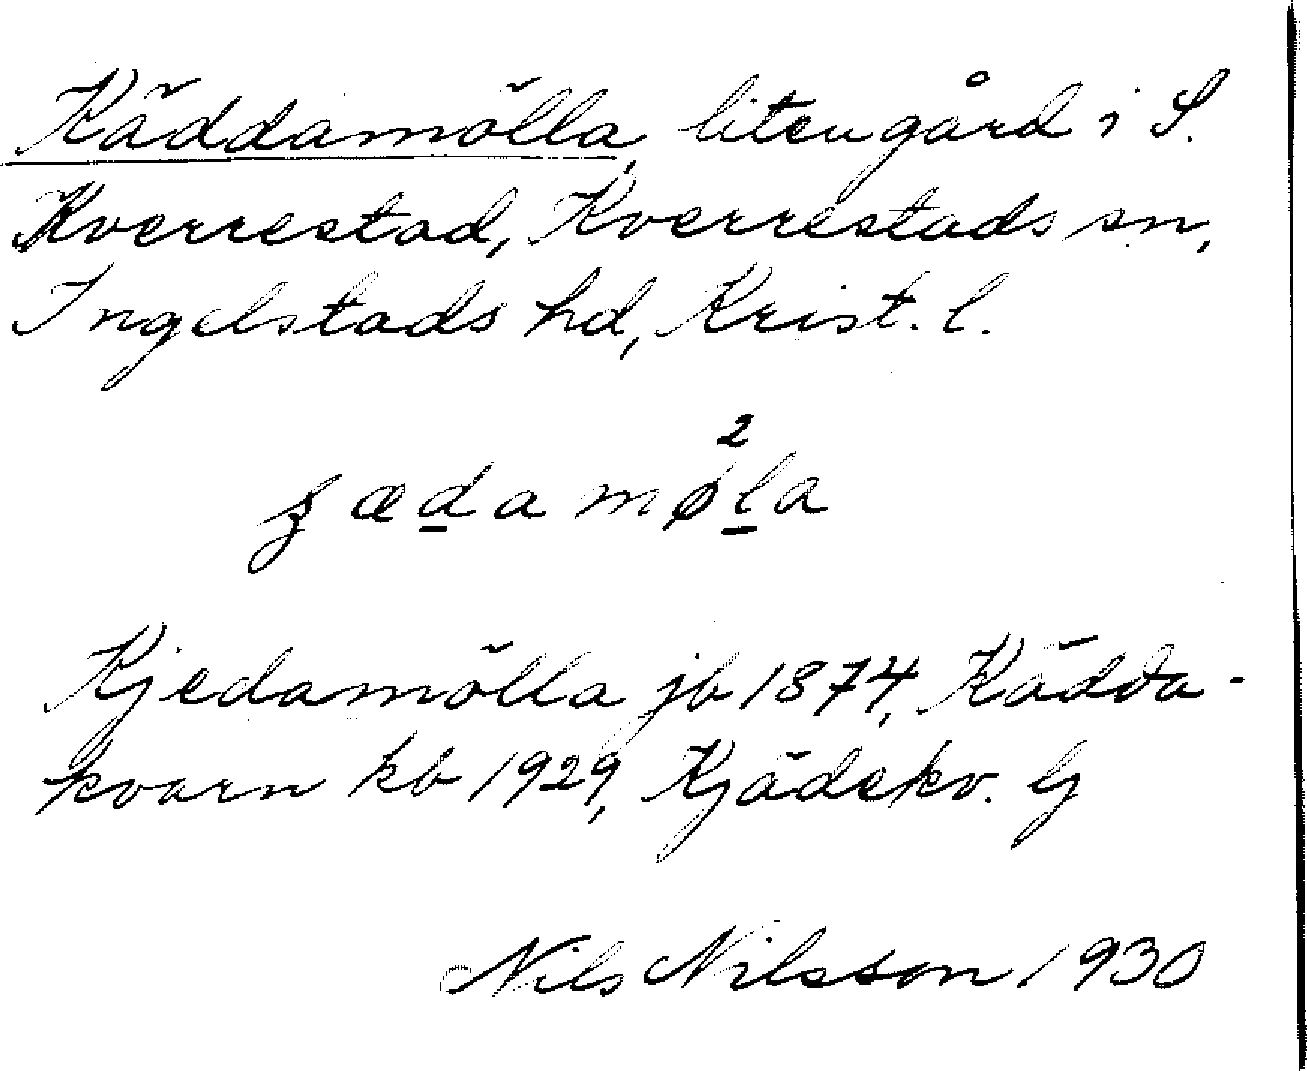 Käddamölla, liten gård i S.
Kverrestad, Kverrestads sn,
Ingelstads hd, Krist. l.
2
ædamøla
Kjedamölla jb 1874, Kädda-
kvarn kb 1929, Kjädekv. G
Nils Nilsson 1930